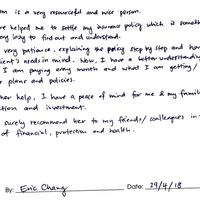 is a very resourceful and nice person.
helped me to settle my insurance policy which is someth
easy to find out and understand.
very patience, explaining the policy step by step and ha
ient's needs in mind. Now, I have a better understanding
I am paying every month and what I am getting /
plans and policies.
her help, I have a peace of mind for me & my famil
tion and investment.
surely recommend her to my friends/colleagues in t
of financial, protection and health.
By: Eric Chang Date: 29/4/18